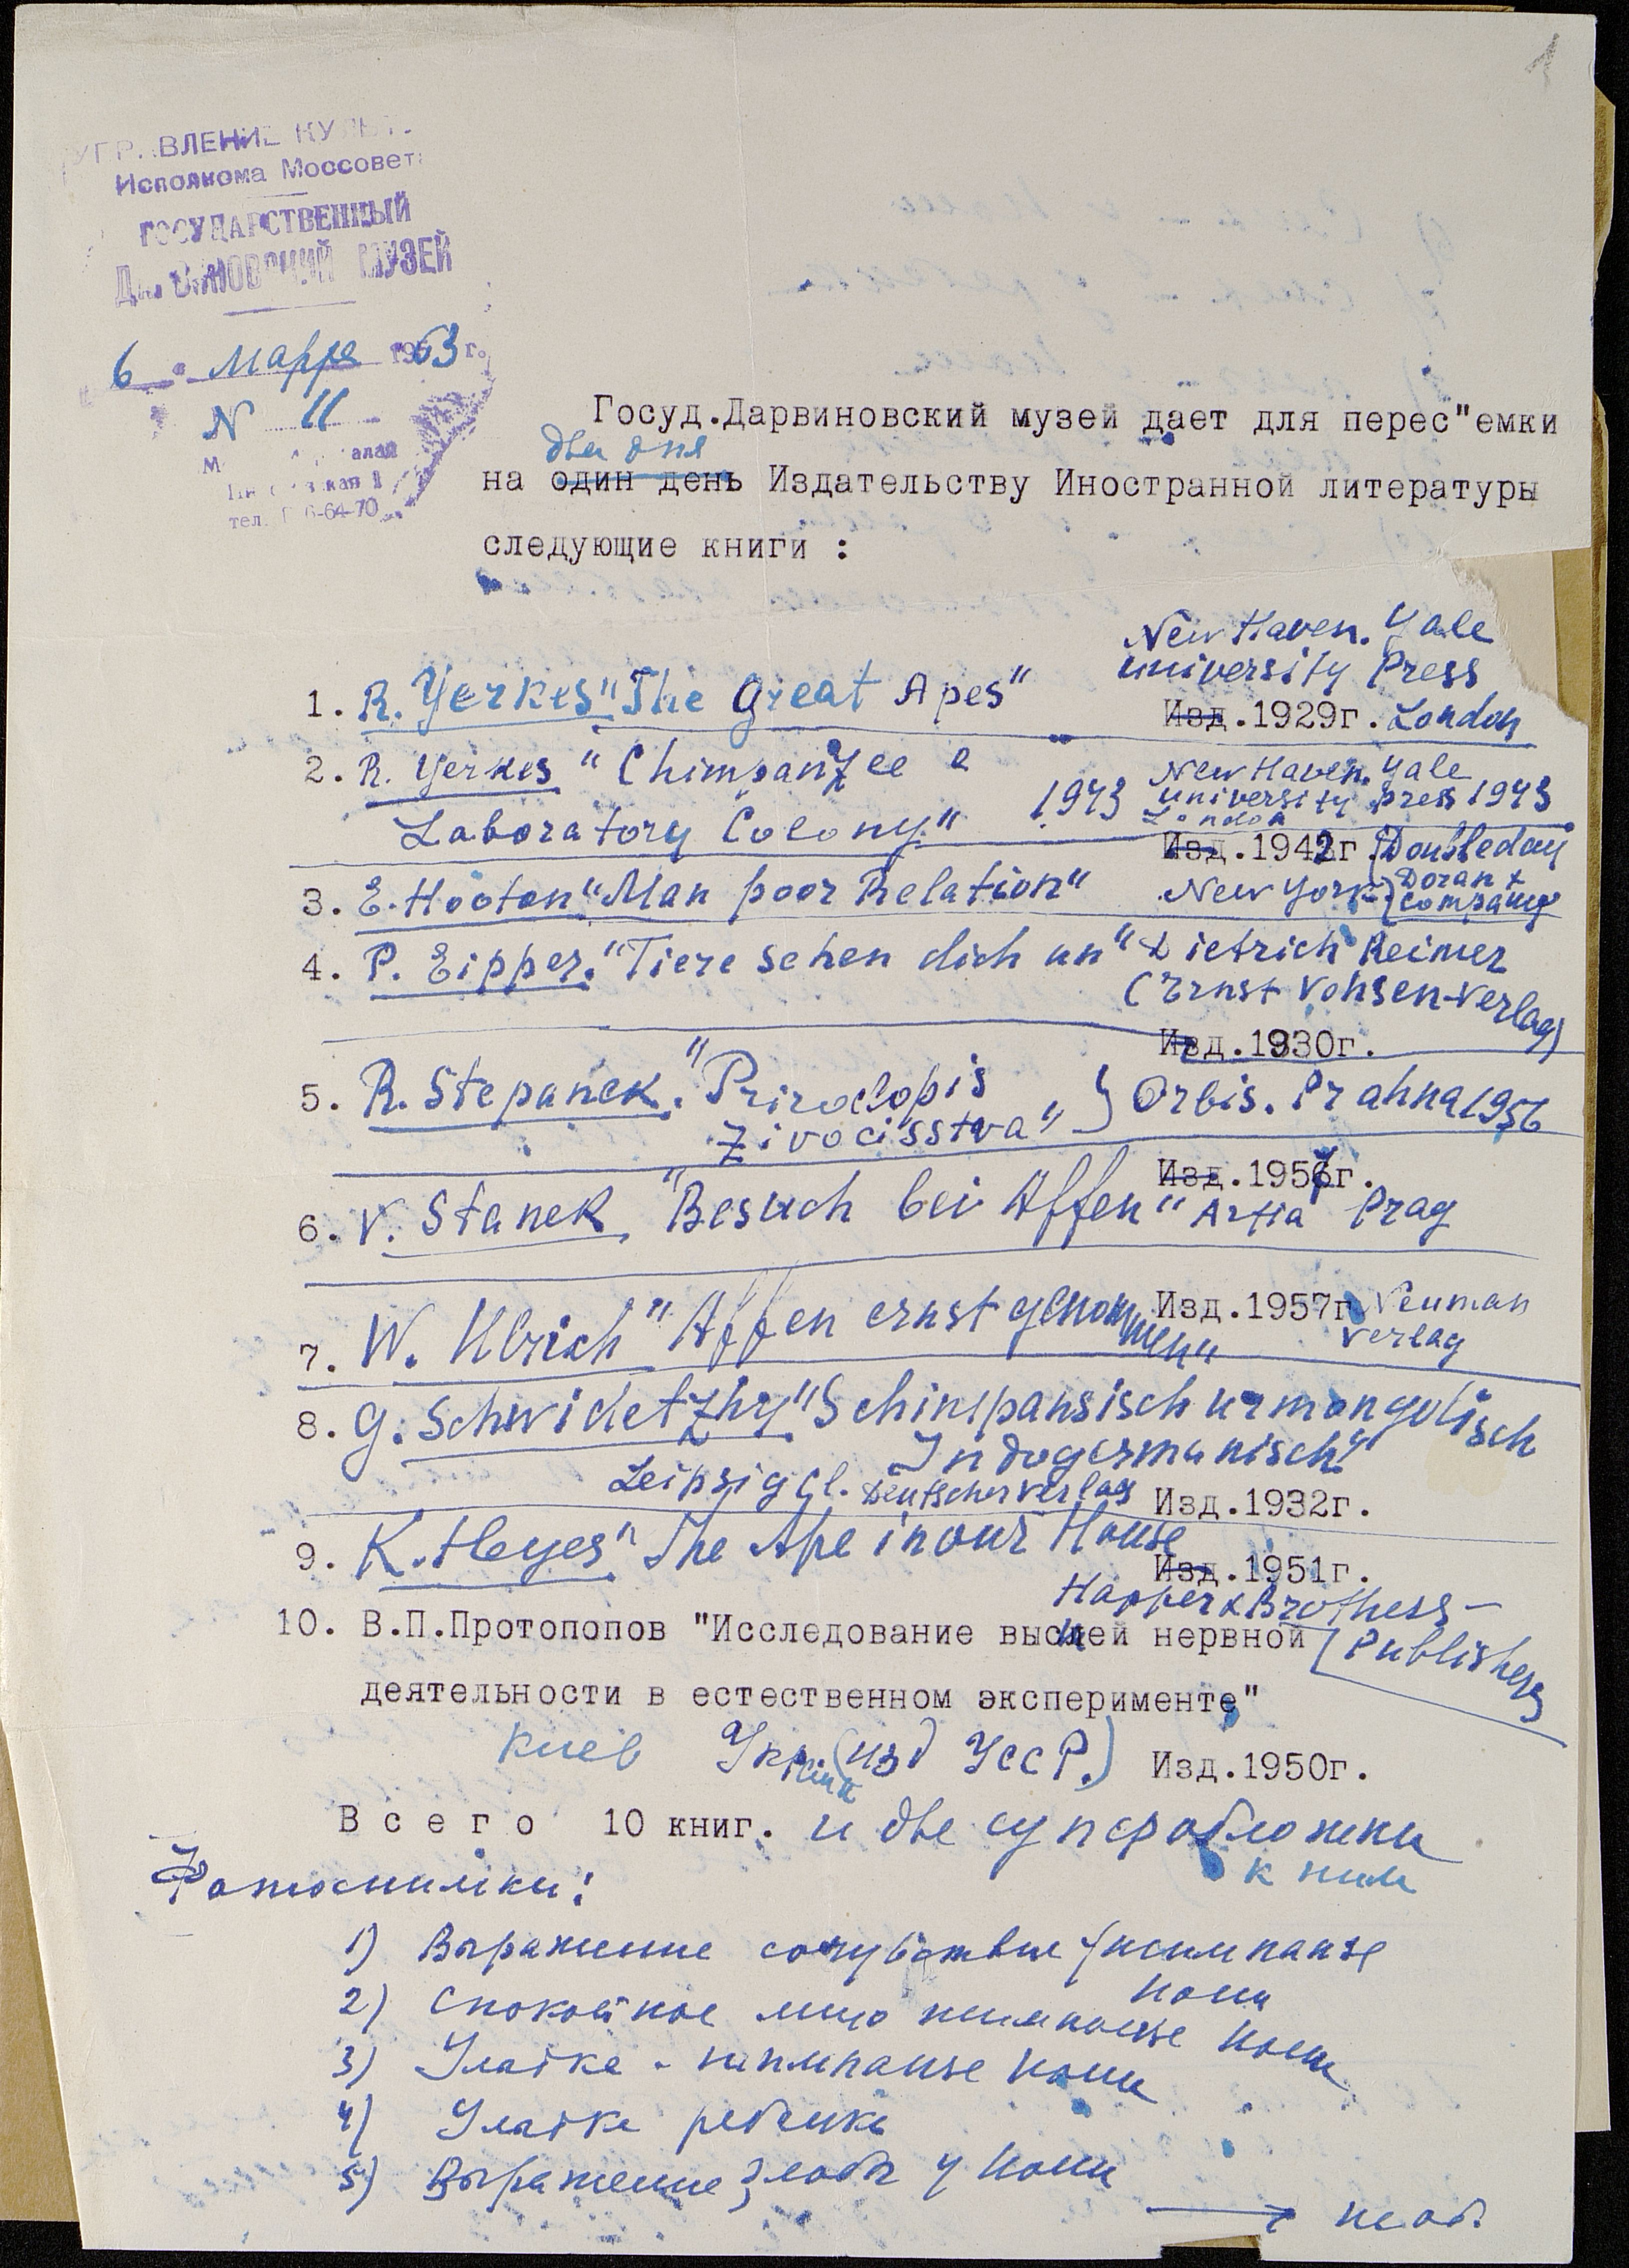 1
Исполкома Моссовета
ГОСУДАРСТВЕННЫЙ
МУЗЕЙ
6 марта 1963 г.
N 11
тел. 6-64-70
Госуд.Дарвиновский музей дает для перес"емки
два дня
на один день Издательству Иностранной литературы
следующие книги :
New Haven. Yale
University Press
1. R. Yerkes "The Great Apes"
Изд.1929г. London
2. R. Yerkes "Chimpanzee a
Laboratory Colony"
1943
New Haven. Yale
University press 1943
London
Изд.1942г. Doubleday
Doran &
Company
New York
3. E. Hooton "Man poor Relation"
4. P. Eipper. "Tiere sehen dich an" Dietrich Reimer
(Ernst Vohsen-Verlag)
Изд.1930г.
5. R. Stepanek. "Prirodopis
Zivocisstva" } Orbis. Prahna 1956
Изд.1957г.
6. V. Stanek, "Besuch bei Affen" Artia Prag
Изд.1957г. Neuman
Verlag
7. W. Ulrich "Affen ernst genommen"
8. G. Schwidetzky "Schimpansisch urmongolisch
Indogermanisch"
Leipsig Deutscher verlag Изд.1932г.
9. K. Heyes "The Ape in our House
Изд.1951г.
Harper & Brothess -
Publishers
10. В.П.Протопопов "Исследование высшей нервной
деятельности в естественном эксперименте"
Киев (изд УССР.) Изд.1950г.
Всего 10 книг. и две суперобложки
к ним
Фотоснимки:
1) Выражение сочувствие у шимпанзе
Иони
2) Спокойное лицо шимпанзе Иони
3) Улыбка - шимпанзе Иони
4) Улыбка ребенка
5) Выражение злобы у Иони
→ на об.